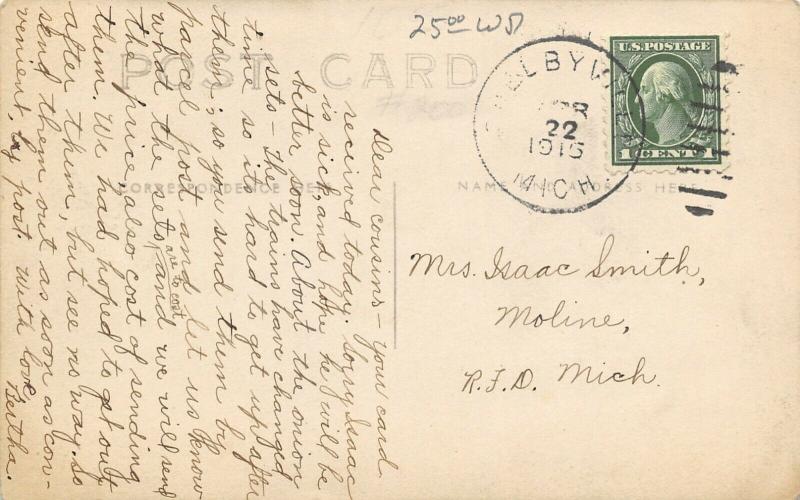 25⁰⁰ WD
POST CARD
SHELBYVILLE
APR
22
1915
MICH.
U.S. POSTAGE
1 CENT 1
CORRESPONDENCE HERE
NAME AND ADDRESS HERE
Mrs. Isaac Smith,
Moline,
R.F.D. Mich.
Dear cousins – your card
received today. Sorry Isaac
is sick, and hope he will be
better soon. About the onion
sets – The trains have changed
time so it's hard to get up after
them; so you send them by
parcel post and let us know
what the sets are to cost and we will send
the price, also cost of sending
them. We had hoped to get out
after them, but see no way. So
send them out as soon as con-
venient, by post. With love,
Bertha.